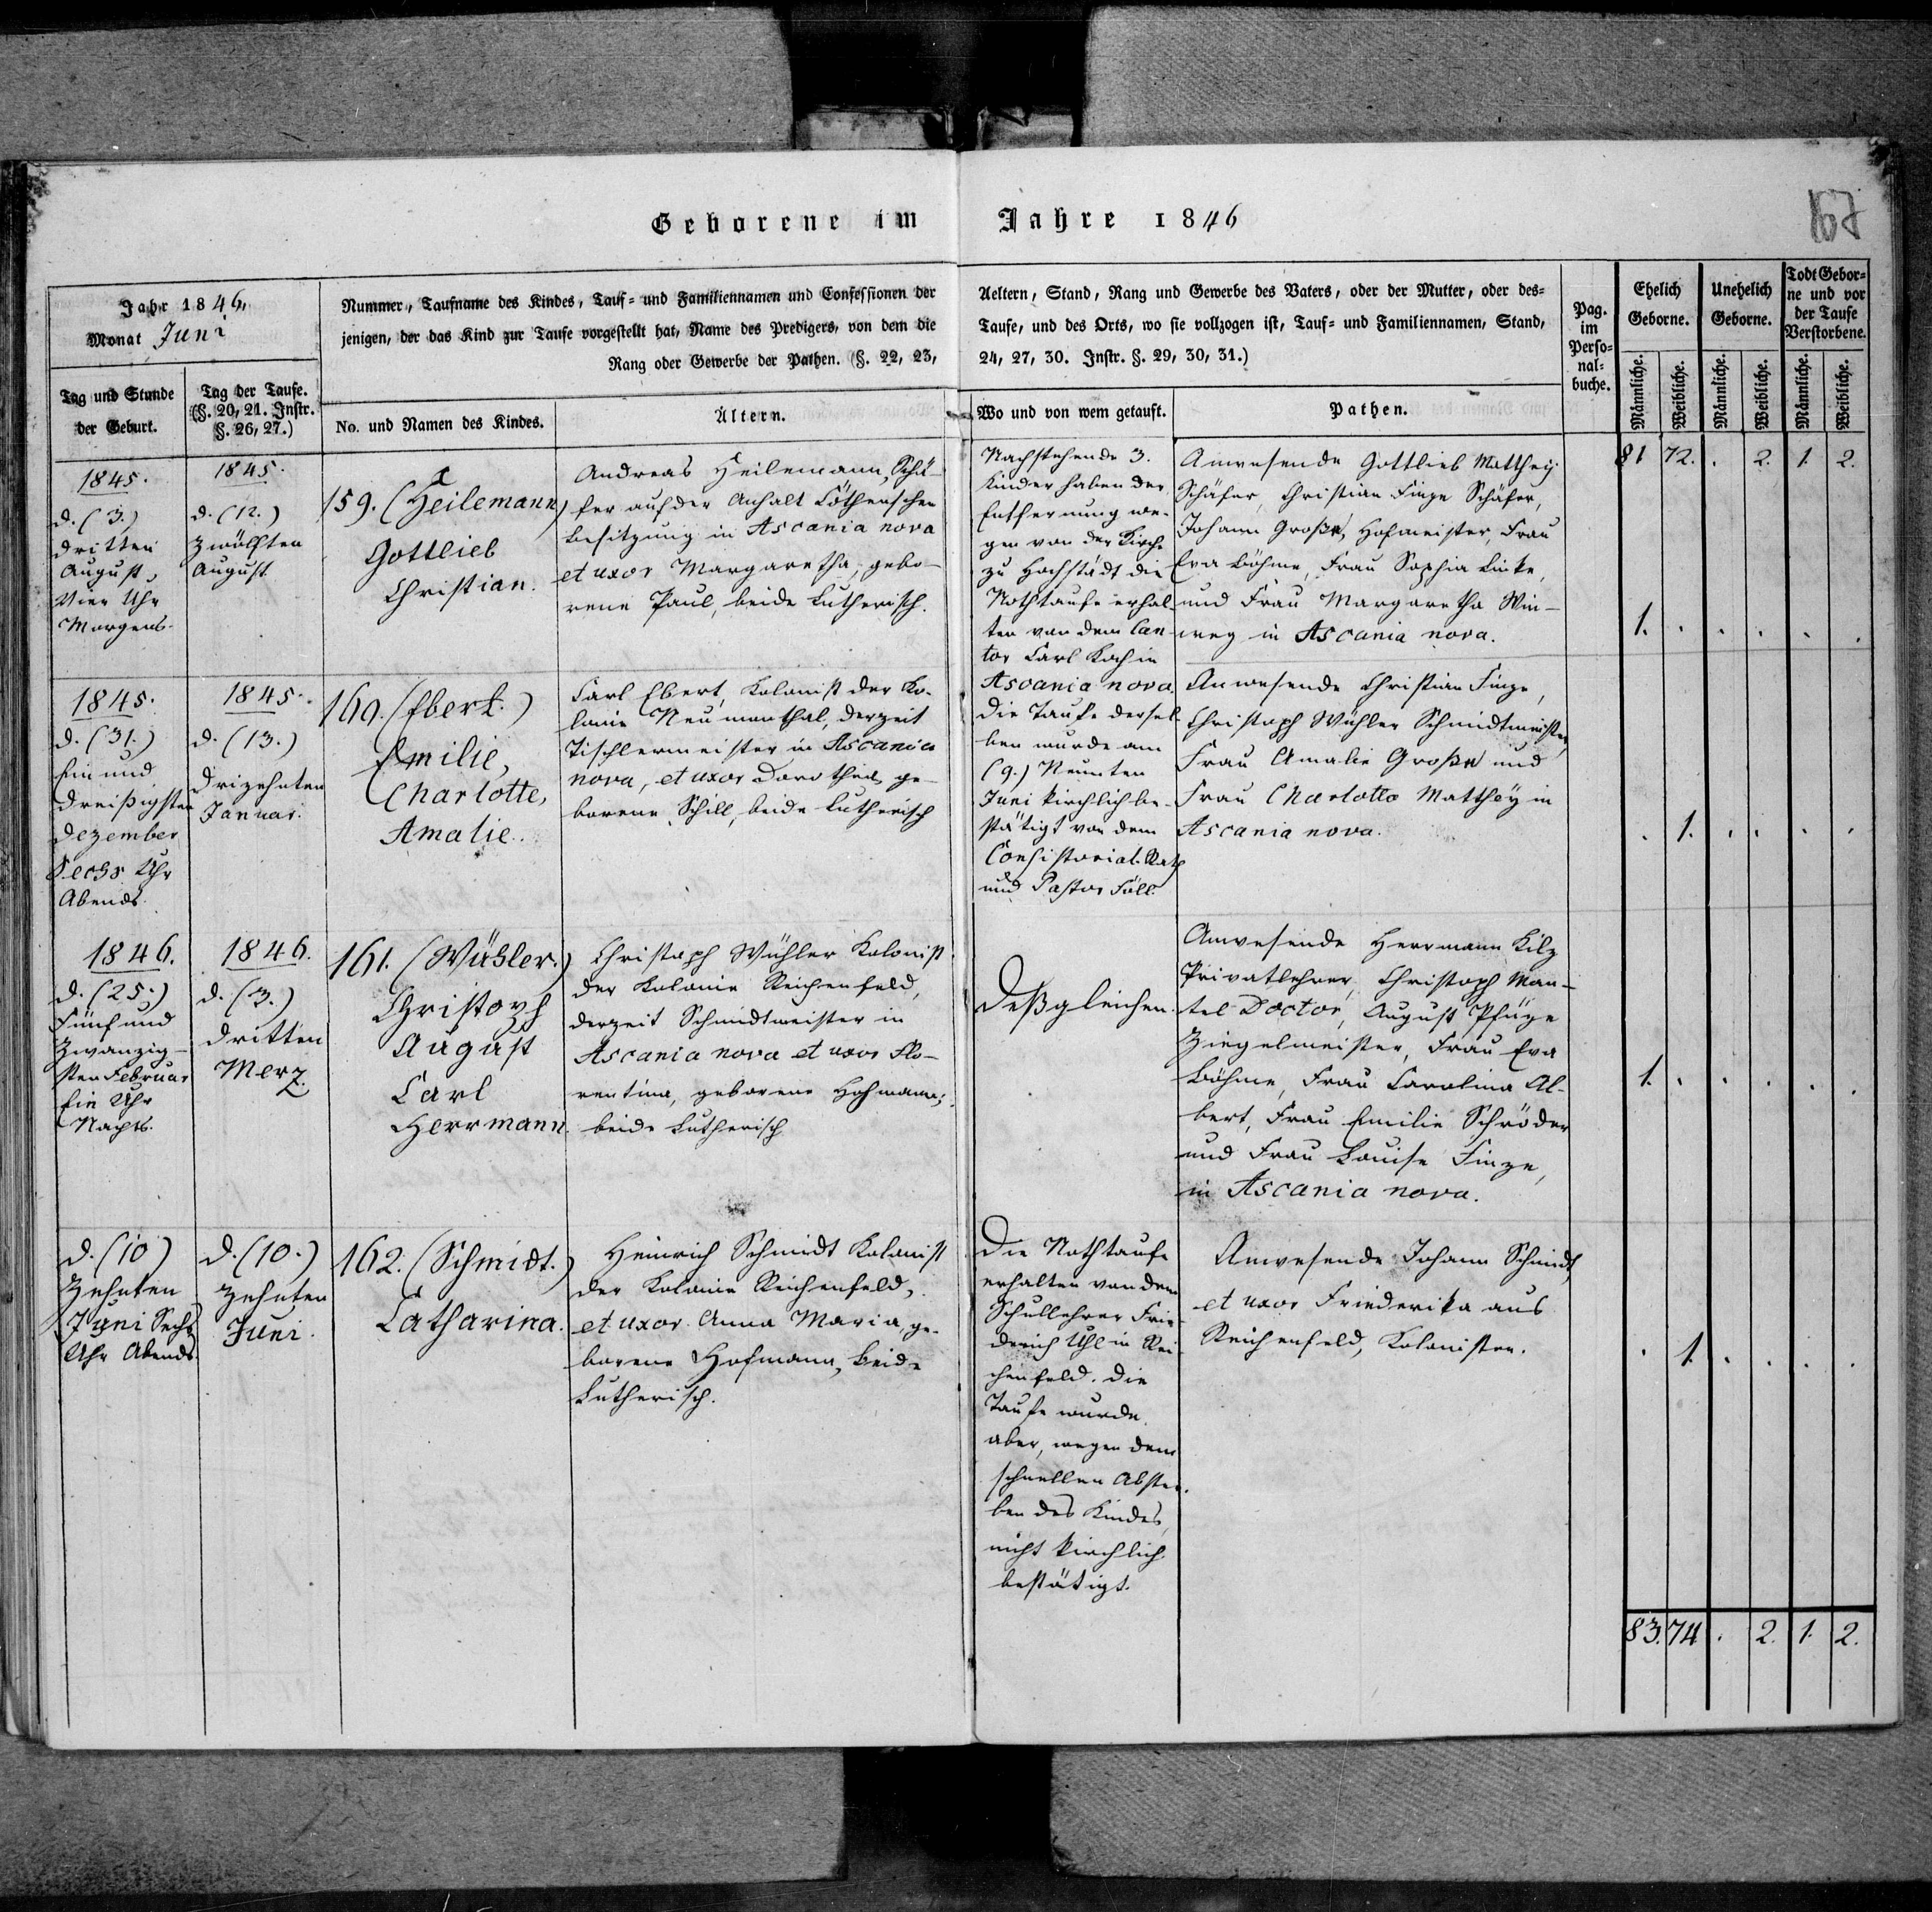 Geborene im Jahre 1846
167
Jahr 1846,
Monat Juni
Nummer, Taufname des Kindes, Tauf- und Familiennamen und Confessionen der
jenigen, der das Kind zur Taufe vorgestellt hat, Name des Predigers, von dem die
Rang oder Gewerbe der Pathen. (§. 22, 23,
Aeltern, Stand, Rang und Gewerbe des Vaters, oder der Mutter, oder des-
Taufe, und des Orts, wo sie vollzogen ist, Tauf- und Familiennamen, Stand,
24, 27, 30. Instr. §. 29, 30, 31.)
Pag.
im
Perso-
nal-
buche.
Ehelich
Geborne.
Unehelich
Geborne.
Todt Gebor-
ne und vor
der Taufe
Verstorbene.
Tag und Stunde
der Geburt.
Tag der Taufe.
(§. 20, 21. Instr.
§. 26, 27.)
No. und Namen des Kindes.
Ältern.
Wo und von wem getauft.
Pathen.
Männliche.
Weibliche.
Männliche.
Weibliche.
Männliche.
Weibliche.
81 72. . 2. 1. 2.
1845.
d. (3.)
dritten
August,
Vier Uhr
Morgens.
1845.
d. (12.)
Zwölften
August.
159. (Heilemann)
Gottlieb
Christian.
Andreas Heilemann, Schä-
fer auf der Anhalt Cöthenschen
Besitzung in Ascania nova
et uxor Margaretha, gebo-
rene Paul, beide Lutherisch.
Nachstehende 3.
Kinder haben der
Entfernung we-
gen von der Kirche
zu Hochstädt die
Nothtaufe erhal-
ten von dem Can-
tor Carl Koch in
Ascania nova.
Die Taufe dersel-
ben wurde am
(9.) Neunten
Juni kirchlich be-
stätigt von dem
Consistorial-Rath
und Pastor Föll.
Anwesende Gottlieb Matthey
Schäfer, Christian Finze Schäfer,
Johann Große, Hofmeister, Frau
Eva Böhme, Frau Sophia Linke,
und Frau Margaretha Win-
weg in Ascania nova.
1. . . . . .
1845.
d. (31.)
Ein und
dreißigsten
Dezember
Sechs Uhr
Abends.
1845.
d. (13.)
Drizehnten
Januar.
160. (Ebert.)
Emilie,
Charlotte,
Amalie.
Carl Ebert, Kolonist der Ko-
lonie Neumonthal, derzeit
Tischlermeister in Ascania
nova, et uxor Dorothea, ge-
borene Schill, beide Lutherisch
Anwesende Christian Finze,
Christoph Wühler Schmidtmeister,
Frau Amalie Große und
Frau Charlotte Matthey in
Ascania nova.
. 1. . . . .
1846.
d. (25.)
Fünf und
Zwanzig-
sten Februar
Ein Uhr
Nachts.
1846.
d. (3.)
dritten
Merz.
161. (Wühler.)
Christoph
August
Carl
Herrmann.
Christoph Wühler Kolonist
der Kolonie Reichenfeld,
derzeit Schmidtmeister in
Ascania nova et uxor Flo-
rentina, geborene Hohmann;
beide Lutherisch
Deßgleichen.
Anwesende Herrmann Kilz
Privatlehrer, Christoph Man-
tel Doctor, August Pfüze
Ziegelmeister, Frau Eva
Böhme, Frau Carolina Al-
bert, Frau Emilie Schröder
und Frau Louise Finze,
in Ascania nova.
1. . . . . .
d. (10)
Zehnten
Juni Sechs
Uhr Abends.
d. (10.)
Zehnten
Juni.
162. (Schmidt.)
Catharina.
Heinrich Schmidt Kolonist
der Kolonie Reichenfeld,
et uxor Anna Maria, ge-
borene Hofmann, beide
Lutherisch.
Die Nothtaufe
erhalten von dem
Schullehrer Frie-
derich Uhl in Rei-
chenfeld. Die
Taufe wurde
aber, wegen dem
schnellen Abster-
ben des Kindes,
nicht kirchlich
bestätigt.
Anwesende Johann Schmidt
et uxor Friederika aus
Reichenfeld, Kolonisten.
. 1. . . . .
83. 74 . 2. 1. 2.